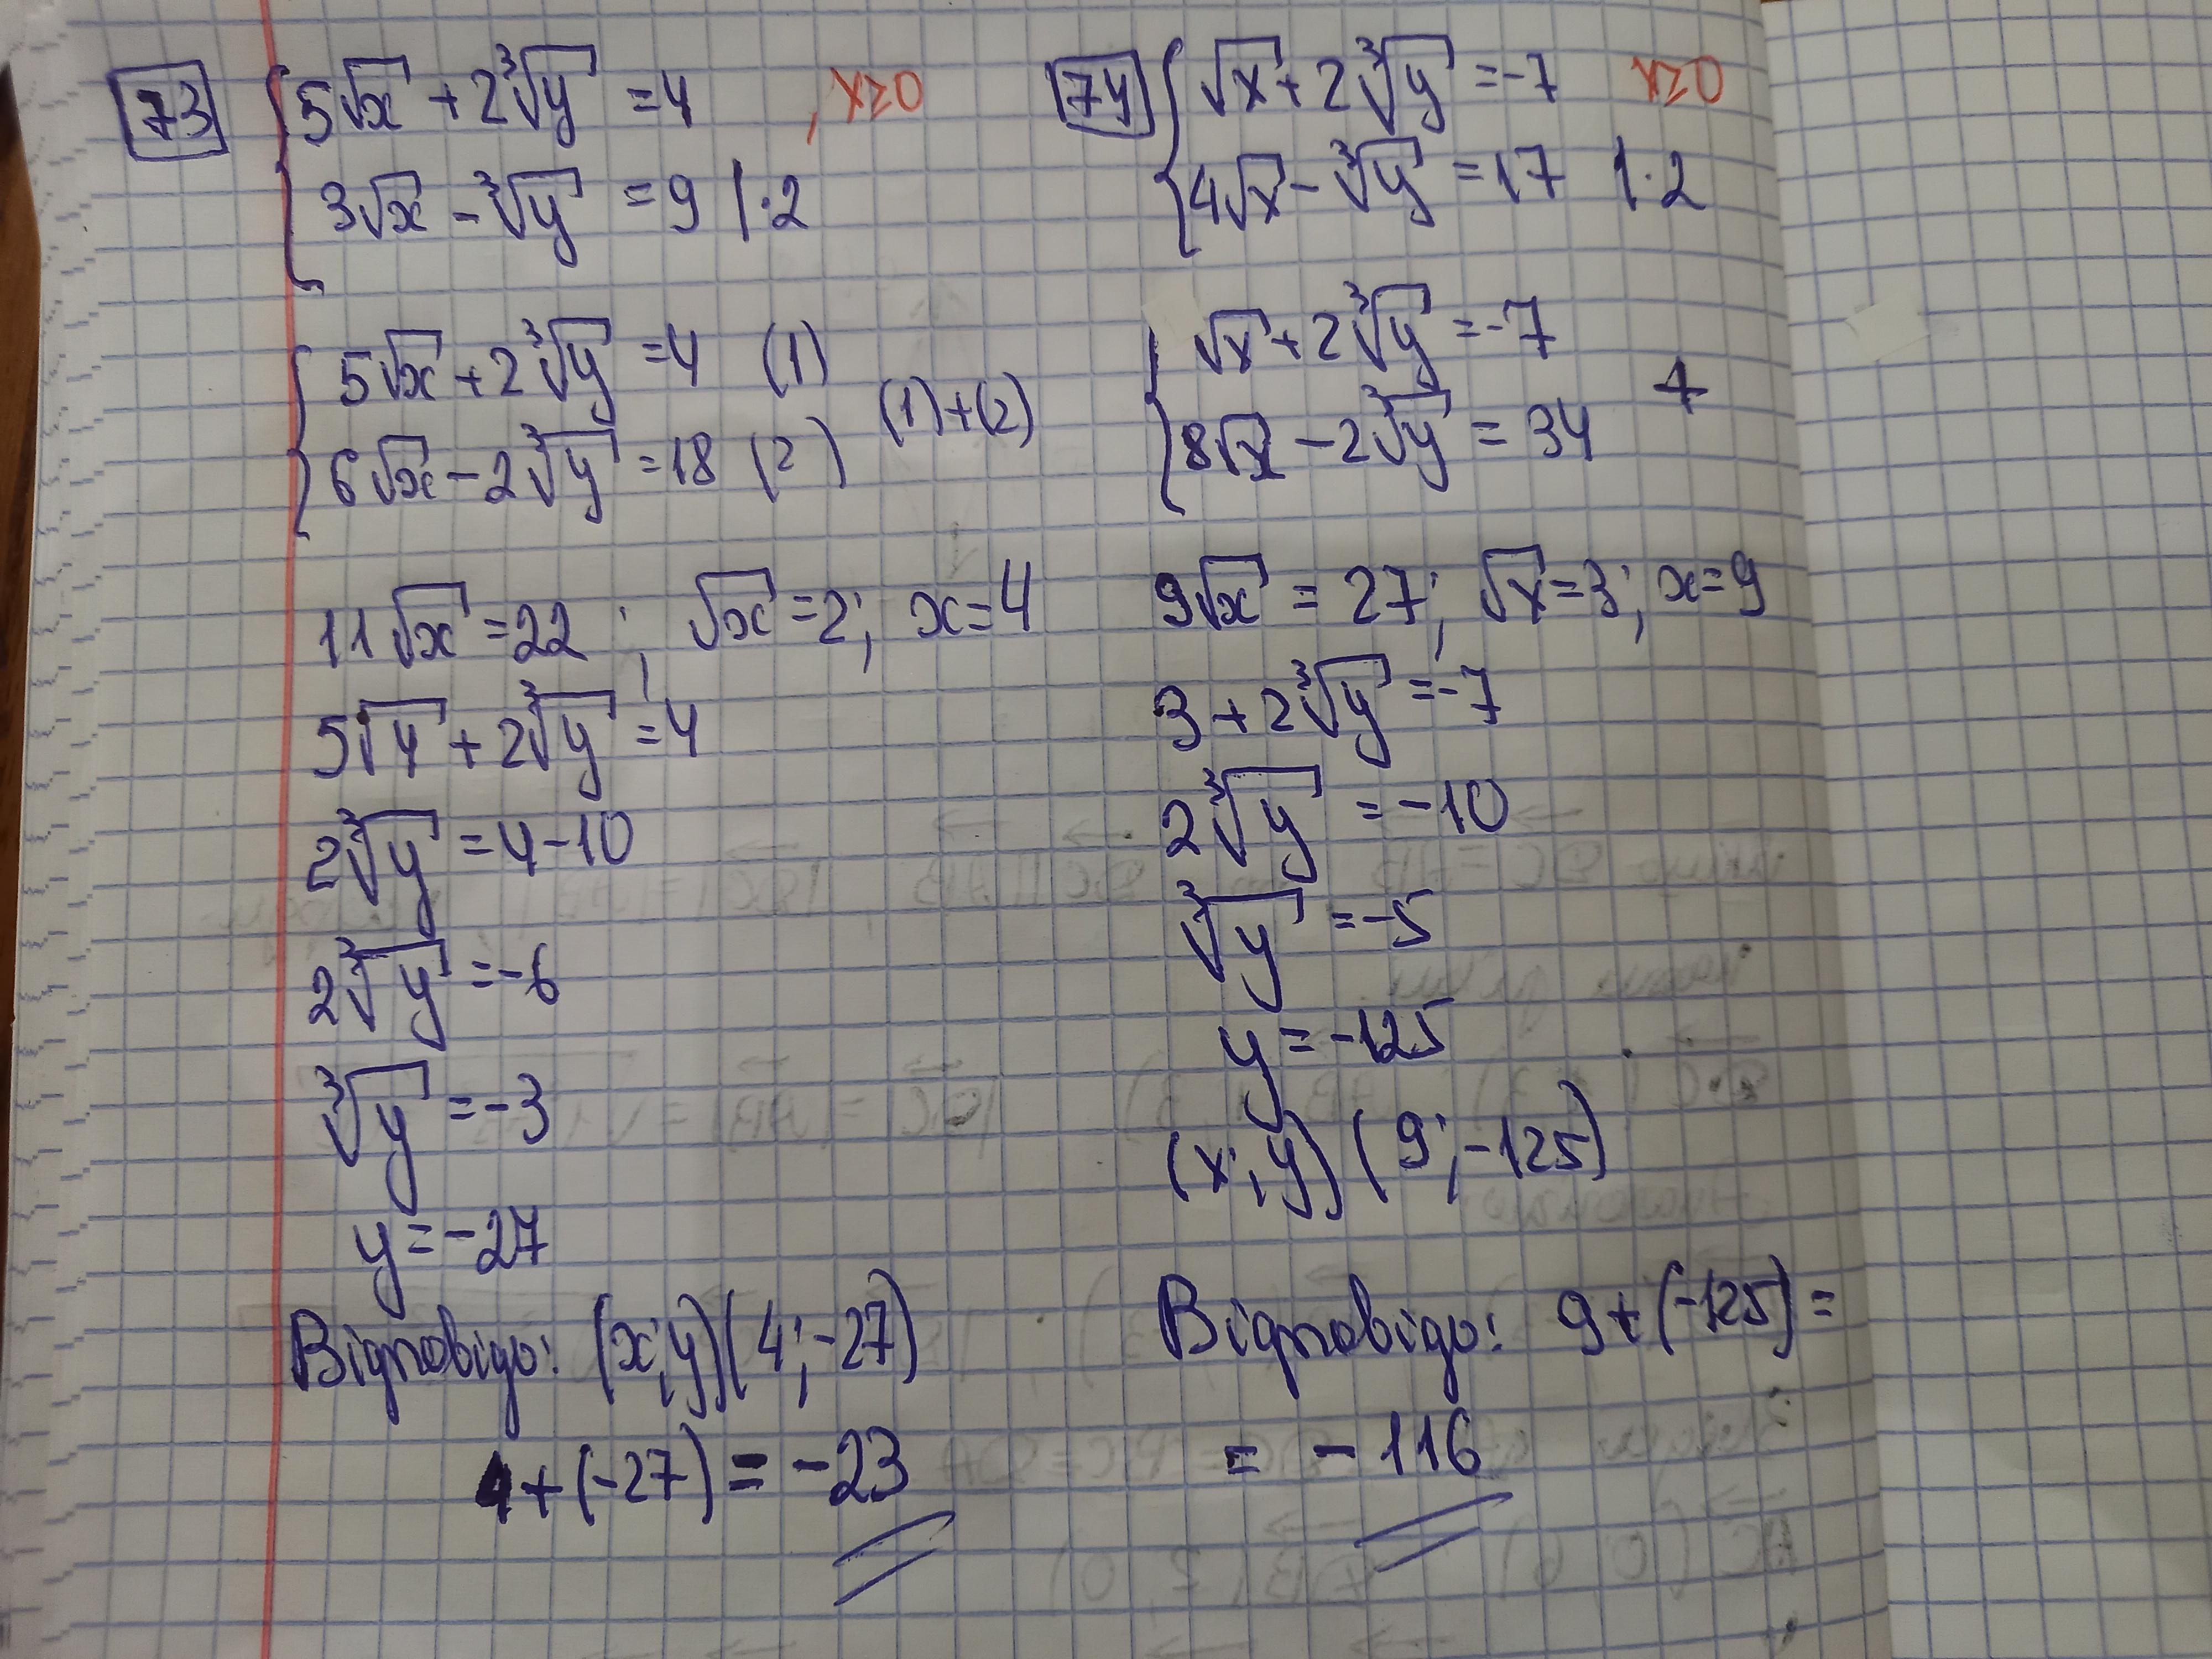 73
5√x + 2∛y = 4
3√x - ∛y = 9 | · 2
5√x + 2∛y = 4 (1)
6√x - 2∛y = 18 (2)
(1)+(2)
11√x = 22 ; √x = 2; x = 4
5√4 + 2∛y = 4
2∛y = 4-10
2∛y = -6
∛y = -3
y = -27
Відповідь: (x;y)(4;-27)
4+(-27) = -23
74
√x + 2∛y = -7
4√x - ∛y = 17 | · 2
√x + 2∛y = -7
8√x - 2∛y = 34
+
9√x = 27; √x = 3; x = 9
3 + 2∛y = -7
2∛y = -10
∛y = -5
y = -125
(x;y) (9;-125)
Відповідь: 9+(-125) =
= -116